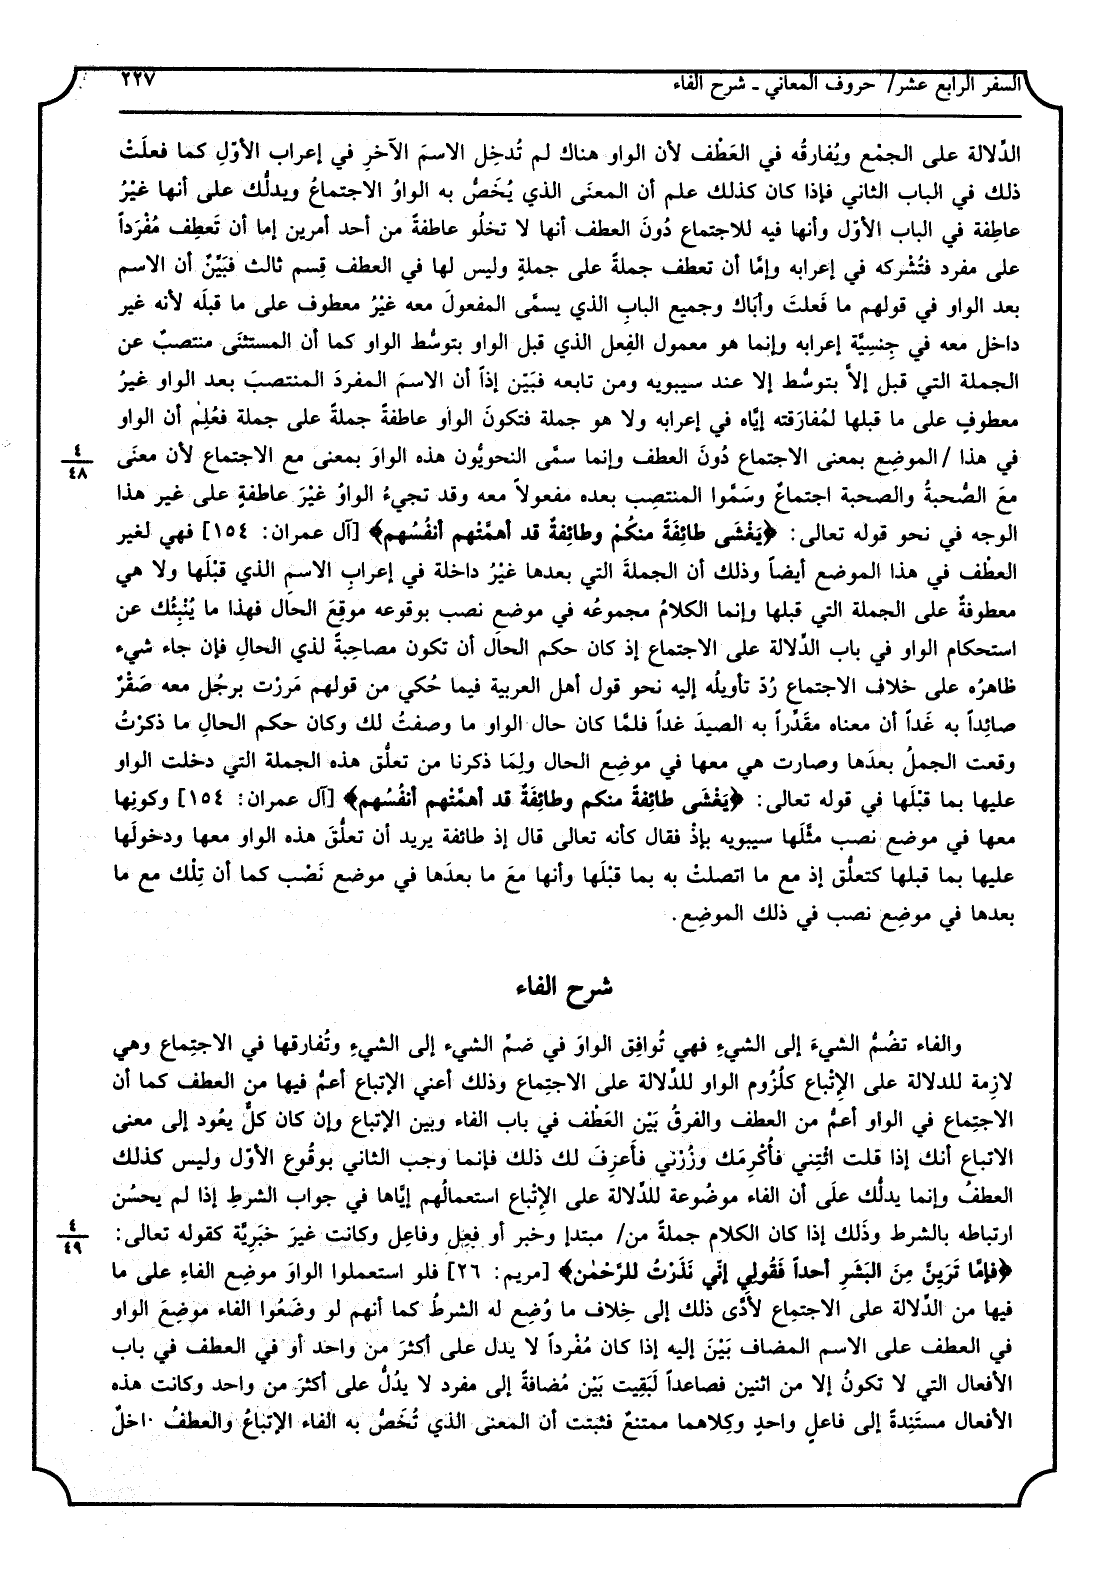 السفر الرابع عشر/ حروف المعاني ـ شرح الفاء ٢٢٧
الدِّلالة على الجمْع ويُفارقُه في العَطْف لأن الواو هناك لم تُدخِل الاسمَ الآخرِ في إعراب الأوّلِ كما فعلَتْ
ذلك في الباب الثاني فإذا كان كذلك علم أن المعنَى الذي يُخَصُّ به الواوُ الاجتماعُ ويدلُّك على أنها غيْرُ
عاطِفة في الباب الأوّل وأنها فيه للاجتماع دُونَ العطف أنها لا تخلُو عاطفةً من أحد أمرين إما أن تَعطِف مُفْرَداً
على مفرد فتُشْركه في إعرابه وإمَّا أن تعطف جملةً على جملةٍ وليس لها في العطف قِسم ثالث فبَيِّنٌ أن الاسم
بعد الواو في قولهم ما فَعلتَ وأبَاك وجميع البابِ الذي يسمَّى المفعولَ معه غيْرُ معطوف على ما قبلَه لأنه غير
داخل معه في جِنسِيَّة إعرابه وإنما هو معمول الفِعل الذي قبل الواو بتوسُّط الواو كما أن المستثنَى منتصبٌ عن
الجملة التي قبل إلاَّ بتوسُّط إلا عند سيبويه ومن تابعه فبَيّن إذاً أن الاسمَ المفردَ المنتصبَ بعد الواو غيرُ
معطوفٍ على ما قبلها لمُفارَقته إيَّاه في إعرابه ولا هو جملة فتكونَ الواو عاطفةً جملةً على جملة فعُلِمْ أن الواو
في هذا /الموضِع بمعنى الاجتماع دُونَ العطف وإنما سمَّى النحويُّون هذه الواوَ بمعنى مع الاجتماع لأن معنَى
٤
٤٨
معَ الصُّحبةُ والصحبة اجتماعٌ وسَمَّوا المنتصِب بعده مفعولاً معه وقد تجيءُ الواوُ غيْرَ عاطفةٍ على غير هذا
الوجه في نحو قوله تعالى: ﴿يَغْشَى طائِفَةً منكُمْ وطائِفةٌ قد أهمَّتْهم أنفُسُهم﴾ [آل عمران: ١٥٤] فهي لغير
العطْف في هذا الموضع أيضاً وذلك أن الجملةَ التي بعدها غيْرُ داخلة في إعرابِ الاسمِ الذي قبْلَها ولا هي
معطوفةٌ على الجملة التي قبلها وإنما الكلامُ مجموعُه في موضع نصب بوقوعه موقِعَ الحال فهذا ما يُنْبِئُك عن
استحكام الواو في باب الدِّلالة على الاجتماع إذ كان حكم الحال أن تكون مصاحِبةً لذي الحالِ فإن جاء شيء
ظاهرُه على خلاف الاجتماع رُدّ تأويلُه إليه نحو قول أهل العربية فيما حُكي من قولهم مَررْت برجُل معه صَقْرٌ
صائِداً به غَداً أن معناه مقَدِّراً به الصيدَ غداً فلمَّا كان حال الواو ما وصفتُ لك وكان حكم الحالِ ما ذكرْتُ
وقعت الجملُ بعدَها وصارت هي معها في موضِع الحال ولِمَا ذكرنا من تعلُّق هذه الجملة التي دخلت الواو
عليها بما قبْلَها في قوله تعالى: ﴿يَغْشَى طائِفةً منكم وطائِفَةٌ قد أهمَّتْهم أنفُسُهم﴾ [آل عمران: ١٥٤] وكونِها
معها في موضع نصب مثَّلَها سيبويه بإذْ فقال كأنه تعالى قال إذ طائفة يريد أن تعلُّقَ هذه الواو معها ودخولَها
عليها بما قبلها كتعلُّق إذ مع ما اتصلتْ به بما قبْلَها وأنها معَ ما بعدَها في موضع نَصْب كما أن تِلْك مع ما
بعدها في موضِع نصب في ذلك الموضِع.
شرح الفاء
والفاء تضُمُّ الشيءَ إلى الشيءِ فهي تُوافِق الواوَ في ضمِّ الشيء إلى الشيءِ وتُفارقها في الاجتِماع وهي
لازِمة للدلالة على الإتْباع كلُزُوم الواو للدِّلالة على الاجتِماع وذلك أعني الإتباع أعمُّ فيها من العطف كما أن
الاجتِماع في الواو أعمُّ من العطف والفرقُ بَيْن العَطْف في باب الفاء وبين الإتباع وإن كان كلٌّ يعُود إلى معنى
الاتباع أنك إذا قلت ائْتِني فأُكْرِمَك وزُرْني فأَعرِفَ لك ذلك فإنما وجب الثاني بوقُوع الأوّل وليس كذلك
العطفُ وإنما يدلُّك علَى أن الفاء موضُوعة للدِّلالة على الإِتْباع استعمالُهم إيَّاها في جواب الشرطِ إذا لم يحسُن
ارتباطه بالشرط وذَلك إذا كان الكلام جملةً من/ مبتدإ وخبر أو فِعِل وفاعِل وكانت غيرَ خبَرِيَّة كقوله تعالى:
٤
٤٩
﴿فإمَّا تَرَيِنَّ مِنَ البَشَرِ أحداً فَقُولي إنّي نَذَرْتُ للرَّحْمٰن﴾ [مريم: ٢٦] فلو استعملوا الواوَ موضِع الفاءِ على ما
فيها من الدِّلالة على الاجتماع لأدَّى ذلك إلى خِلاف ما وُضِع له الشرطُ كما أنهم لو وضَعُوا الفاء موضِعَ الواو
في العطف على الاسم المضاف بَيْنَ إليه إذا كان مُفْرداً لا يدل على أكثرَ من واحد أو في العطف في باب
الأفعال التي لا تكونُ إلا من اثنين فصاعداً لَبَقِيت بَيْن مُضافةً إلى مفرد لا يدُلُّ على أكثرَ من واحد وكانت هذه
الأفعال مستَنِدةً إلى فاعلٍ واحدٍ وكِلاهما ممتنعٌ فثبتت أن المعنى الذي تُخَصُّ به الفاء الإتباعُ والعطفُ داخلٌ